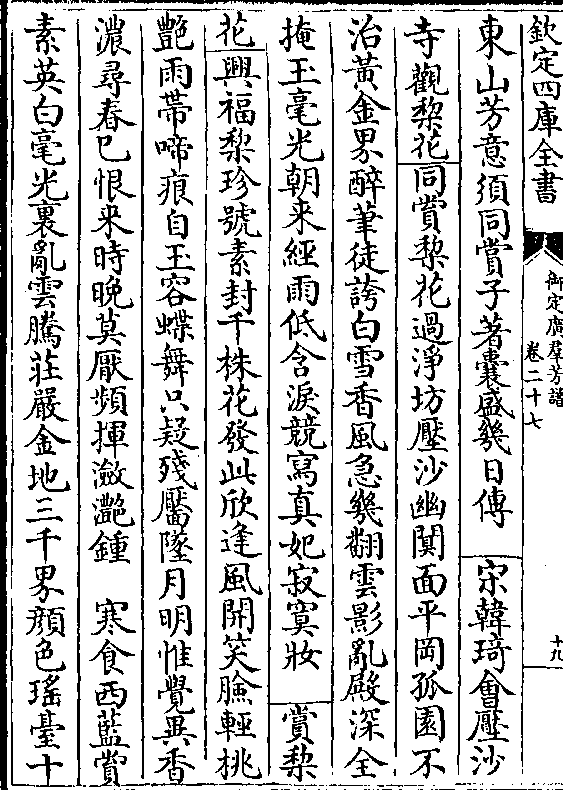 欽定四庫全書
御定廣群芳譜
卷二十七
十九
東山芳意須同賞子著囊盛幾日傳 宋韓琦會壓沙
寺觀棃花同賞棃花過淨坊壓沙幽閴面平岡孤園不
治黄金界醉筆徒誇白雪香風急幾翻雲影亂殿深全
掩玉毫光朝來經雨低含淚競寫真妃寂寞妝 賞棃
花興福棃珍號素封千株花發此欣逢風開笑臉輕挑
艷雨帶啼痕自玉容蝶舞只疑殘靨墜月明惟覺異香
濃尋春已恨来時晚莫厭頻揮瀲灔鍾 寒食西藍賞
素英白毫光裏亂雲騰莊嚴金地三千界顔色瑤臺十